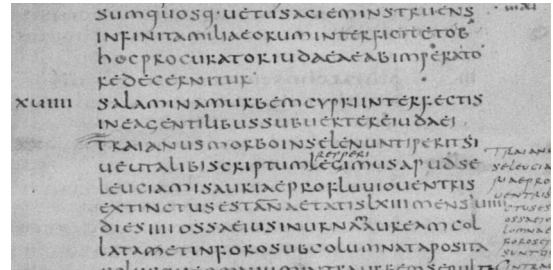 SUMQUOSQ·UETUSACIEMINSTRUENS
INFINITAMILIAEORUMINTERFICITETOB
HOCPROCURATORIUDAEAEABIMPERATO
REDECERNITUR
XUIIII SALAMINAMURBEMCYPRIINTERFECTIS
INEAGENTILIBUSSUBUERTEREIUDAEI
TRAIANUSMORBOINSELENUNTIPERIITSI
UEUTALIBISCRIPTUMLEGIMUSAPUDSE
REPPERI
LEUCIAMISAURIAEPROFLUUIOUENTRIS
EXTINCTUSESTANAETATISLXIIIMENSUIIII
DIESIIIIOSSAEIUSINURNAMAUREAMCOL
LATAMETINFOROSUBCOLUMNATAPOSITA
TRAIAN
SELEUCIA
UENTRIS
OSSAEIU